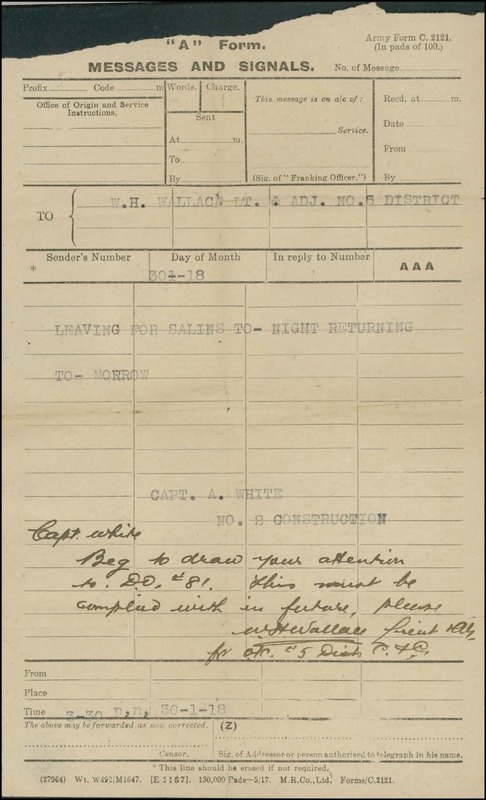 Army Form C. 2121.
"A" Form.
(In pads of 100.)
MESSAGES AND SIGNALS.
No. of Message
Prefix Code m
Words. Charge.
This message is on a/c of:
Recd. at m.
Office of Origin and Service Instructions.
Sent
Date
At m.
Service.
From
To
By
(Sig. of "Franking Officer.")
By
TO
W.H. WALLACE LT. & ADJ. NO.5 DISTRICT
Sender's Number
Day of Month
In reply to Number
AAA
*
30-1-18
LEAVING FOR SALINS TO- NIGHT RETURNING
TO- MORROW
CAPT. A. WHITE
NO. 2 CONSTRUCTION
Capt. White
Beg to draw your attention
to D.O. #81. This must be
complied with in future, please
W.H. Wallace Lieut
for O/C. #5 Dist. C.F.C.
From
Place
Time 3-30 p,n, 30-1-18
The above may be forwarded as now corrected. (Z)
Censor.
Sig. of Addressor or person authorised to telegraph in his name.
* This line should be erased if not required.
(27964) Wt. W492/M1647. [E 1187]. 130,000 Pads—5/17. M.R.Co.,Ltd. Forms/C.2121.